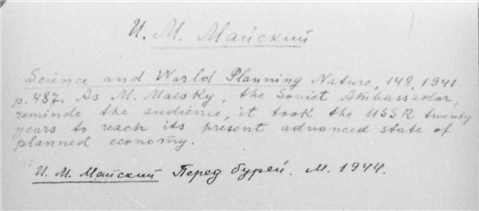 И. М. Майский
Science and World Planning Nature, 148, 1941
p. 487. As M. Maesky, the Soviet Ambassador,
reminds the audience, it took the USSR twenty
years to reach its present advanced state of
planned economy.
И. М. Майский Перед бурей. М. 1944.